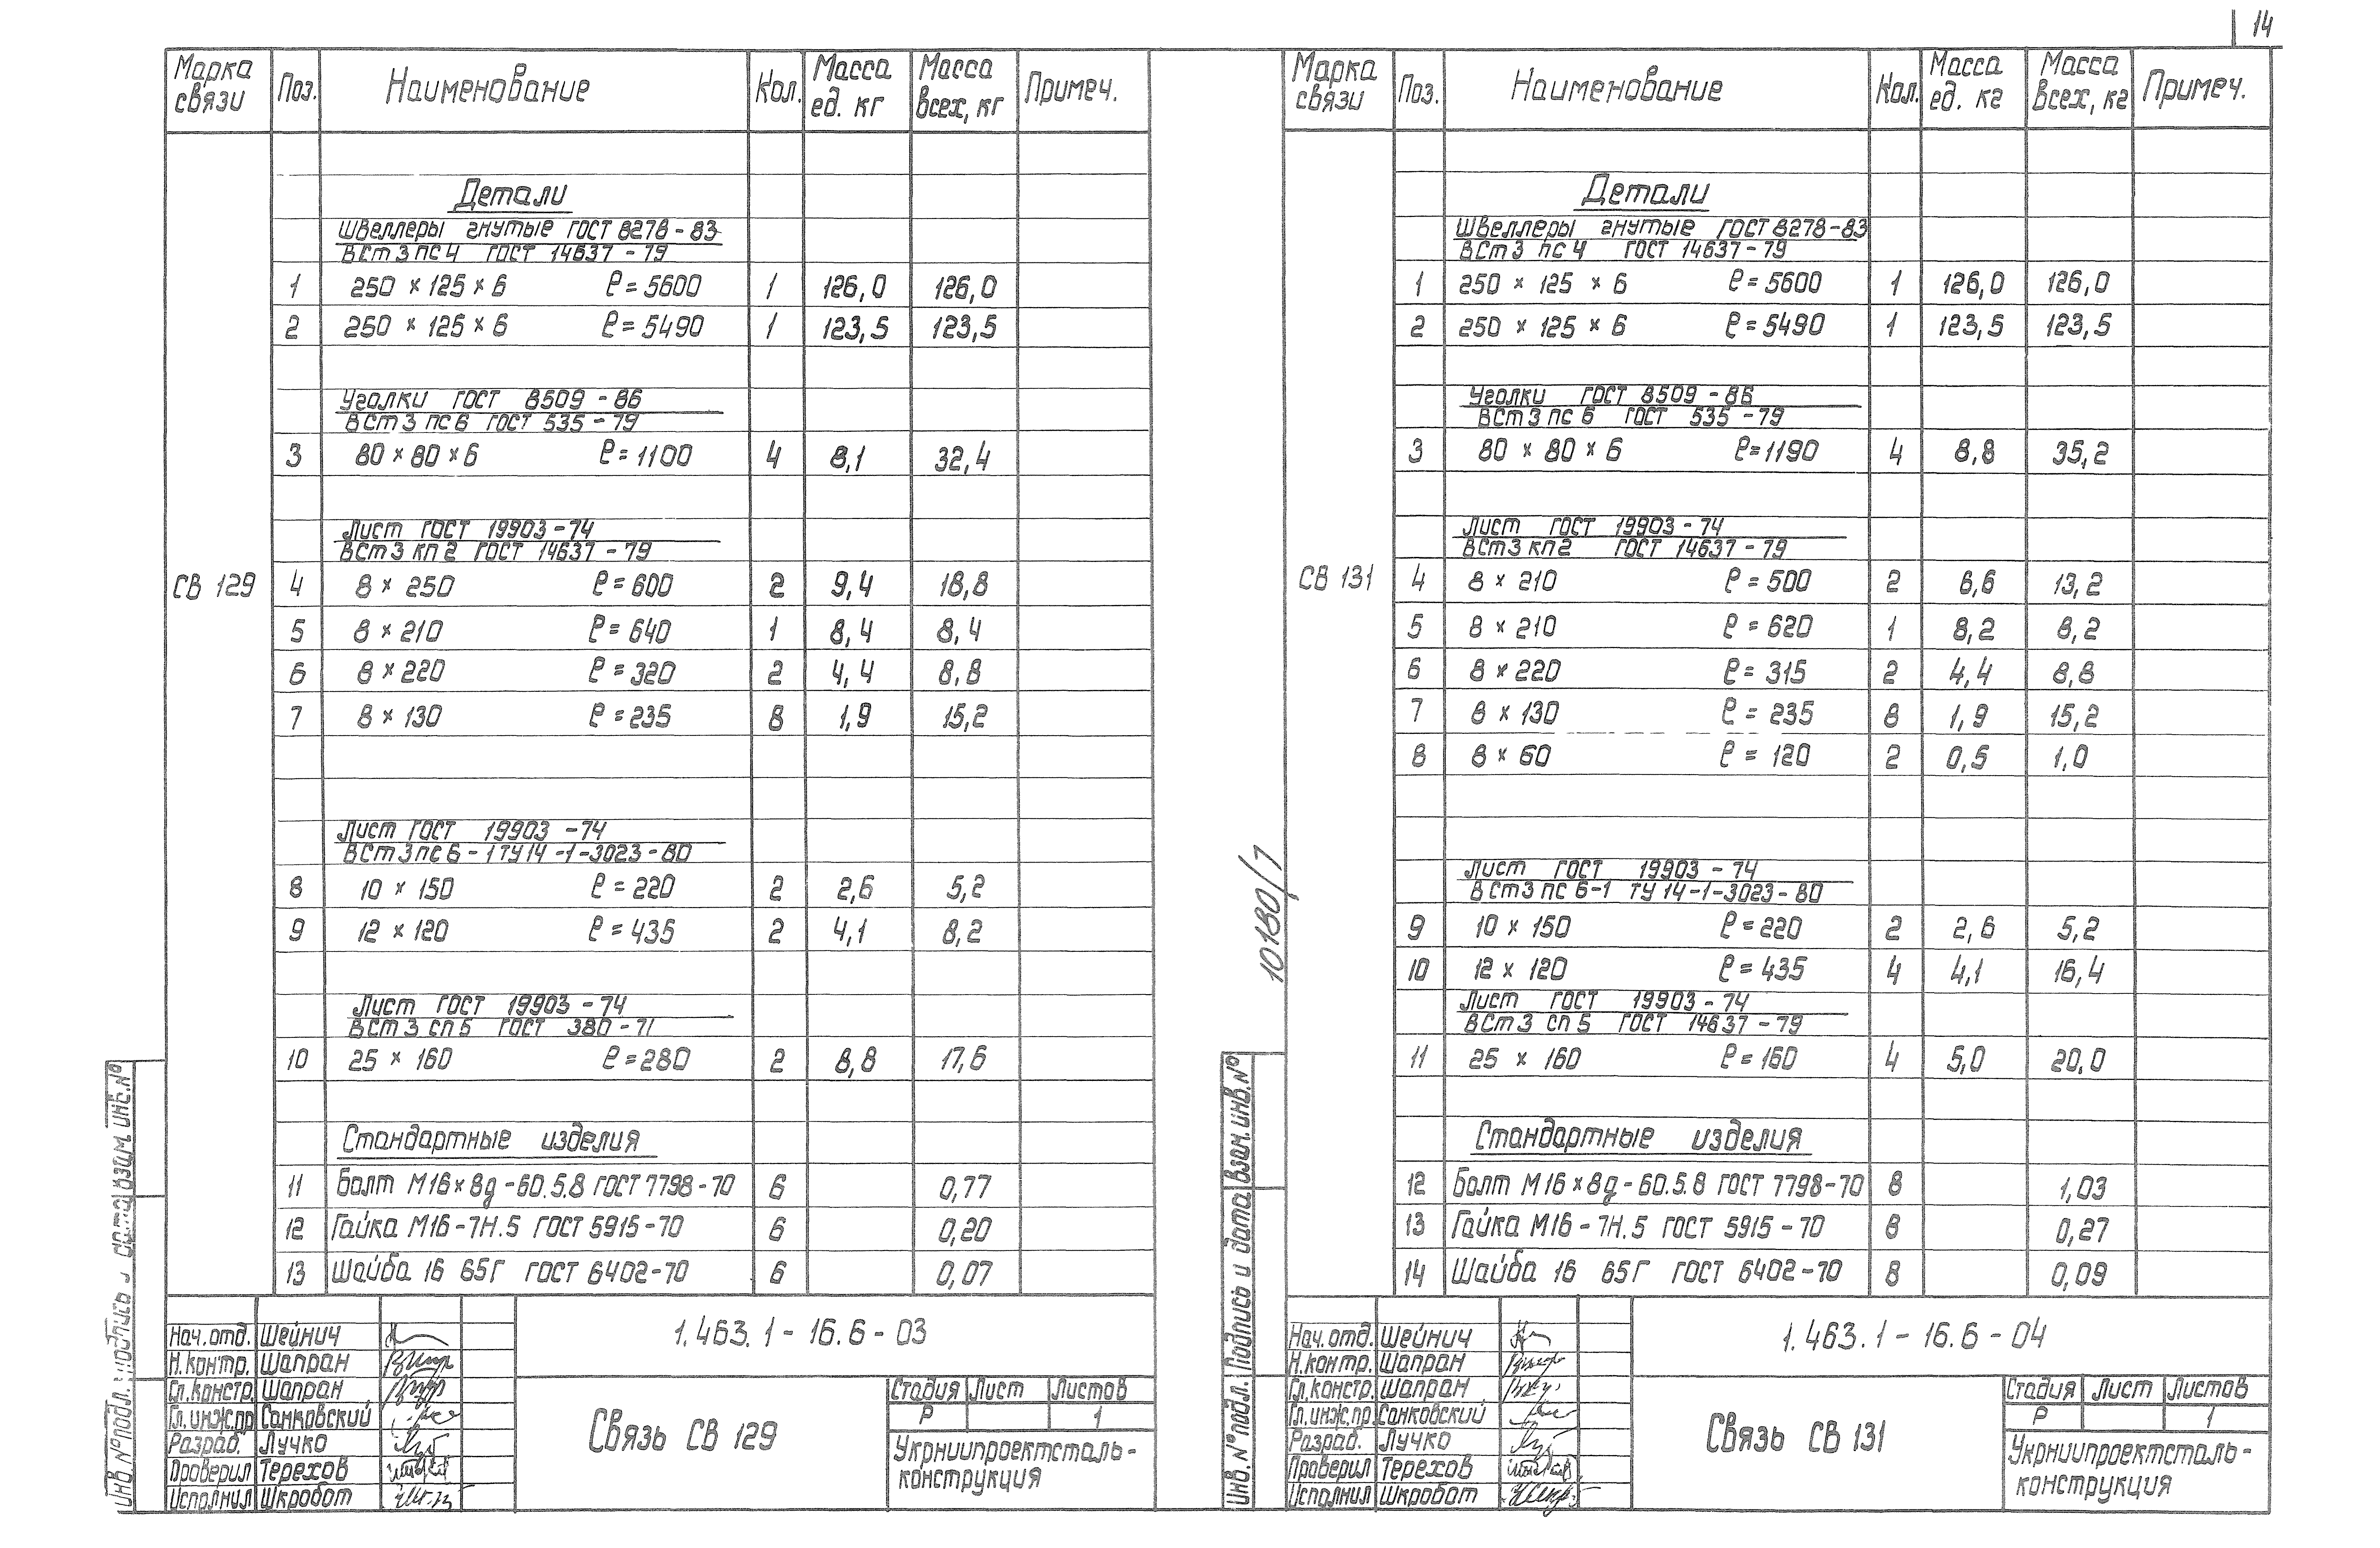 14
Марка связи Поз. Наименование Кол. Масса ед. кг Масса всех, кг Примеч.
Детали
Швеллеры гнутые ГОСТ 8278-83
ВСт3пс4 ГОСТ 14637-79
1 250×125×6 ℓ=5600 1 126,0 126,0
2 250×125×6 ℓ=5490 1 123,5 123,5
Уголки ГОСТ 8509-86
ВСт3пс6 ГОСТ 535-79
3 80×80×6 ℓ=1100 4 8,1 32,4
Лист ГОСТ 19903-74
ВСт3кп2 ГОСТ 14637-79
СВ 129 4 8×250 ℓ=600 2 9,4 18,8
5 8×210 ℓ=640 1 8,4 8,4
6 8×220 ℓ=320 2 4,4 8,8
7 8×130 ℓ=235 8 1,9 15,2
Лист ГОСТ 19903-74
ВСт3пс6-1 ТУ14-1-3023-80
8 10×150 ℓ=220 2 2,6 5,2
9 12×120 ℓ=435 2 4,1 8,2
Лист ГОСТ 19903-74
ВСт3сп5 ГОСТ 380-71
10 25×160 ℓ=280 2 8,8 17,6
Стандартные изделия
11 Болт М16×8g-60.5.8 ГОСТ 7798-70 6 0,77
12 Гайка М16-7Н.5 ГОСТ 5915-70 6 0,20
13 Шайба 16 65Г ГОСТ 6402-70 6 0,07
Нач.отд. Шейнич
Н.контр. Шапран
Гл.констр. Шапран
Гл.инж.пр. Санковский
Разраб. Лучко
Проверил Терехов
Исполнил Шкробот
1.463.1-16.6-03
Связь СВ 129
Стадия Лист Листов
Р 1
Укрниипроектсталь-
конструкция
Инв.№подл. Подпись и дата Взам.инв.№
10180/1
Марка связи Поз. Наименование Кол. Масса ед. кг Масса всех, кг Примеч.
Детали
Швеллеры гнутые ГОСТ 8278-83
ВСт3пс4 ГОСТ 14637-79
1 250×125×6 ℓ=5600 1 126,0 126,0
2 250×125×6 ℓ=5490 1 123,5 123,5
Уголки ГОСТ 8509-86
ВСт3пс6 ГОСТ 535-79
3 80×80×6 ℓ=1190 4 8,8 35,2
Лист ГОСТ 19903-74
ВСт3кп2 ГОСТ 14637-79
СВ 131 4 8×210 ℓ=500 2 6,6 13,2
5 8×210 ℓ=620 1 8,2 8,2
6 8×220 ℓ=315 2 4,4 8,8
7 8×130 ℓ=235 8 1,9 15,2
8 8×60 ℓ=120 2 0,5 1,0
Лист ГОСТ 19903-74
ВСт3пс6-1 ТУ14-1-3023-80
9 10×150 ℓ=220 2 2,6 5,2
10 12×120 ℓ=435 4 4,1 16,4
Лист ГОСТ 19903-74
ВСт3сп5 ГОСТ 14637-79
11 25×160 ℓ=160 4 5,0 20,0
Стандартные изделия
12 Болт М16×8g-60.5.8 ГОСТ 7798-70 8 1,03
13 Гайка М16-7Н.5 ГОСТ 5915-70 8 0,27
14 Шайба 16 65Г ГОСТ 6402-70 8 0,09
Нач.отд. Шейнич
Н.контр. Шапран
Гл.констр. Шапран
Гл.инж.пр. Санковский
Разраб. Лучко
Проверил Терехов
Исполнил Шкробот
1.463.1-16.6-04
Связь СВ 131
Стадия Лист Листов
Р 1
Укрниипроектсталь-
конструкция
Инв.№подл. Подпись и дата Взам.инв.№